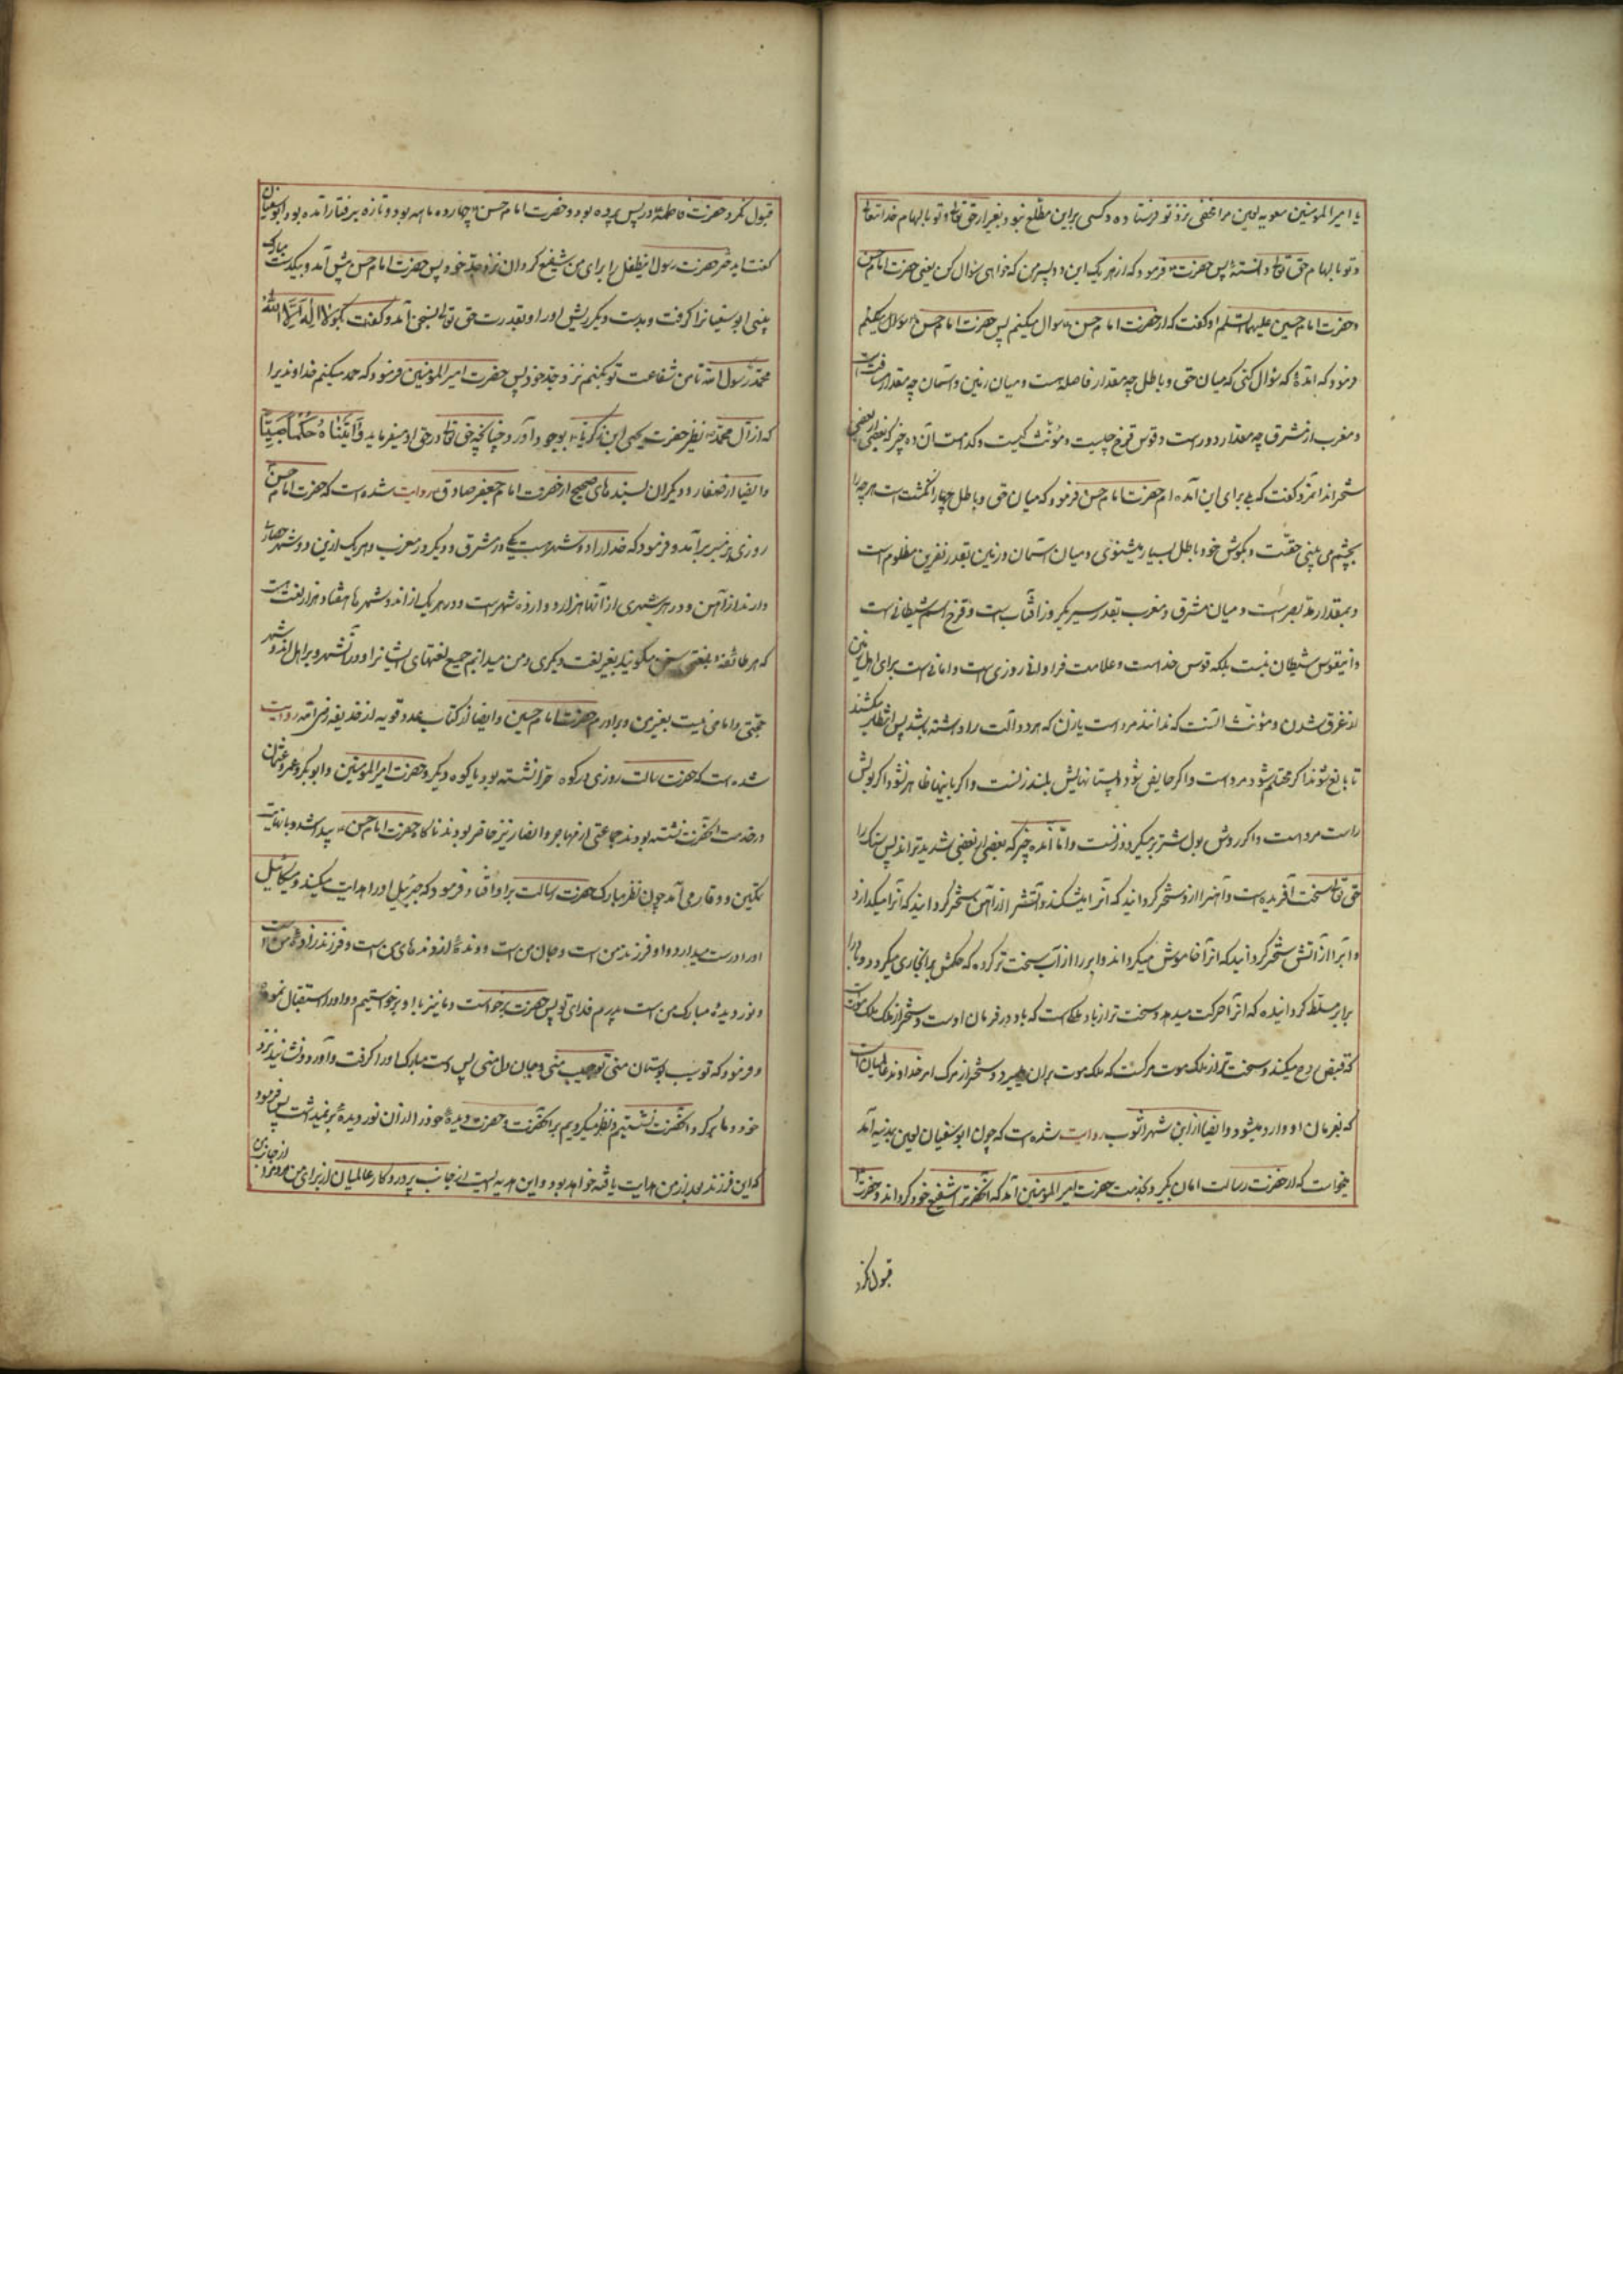 یا امیر المومنین معویه لعین مرا مخفی نزد تو فرستاده و کسی بر این مطلع نبود بغیر از حق تعالی و تو بالهام خدایتعالی
و تو بالهام حق تعالی دانستۀ پس حضرت فرمود که از هر یک این دو پسر من که خواهی سؤال کن یعنی حضرت امام حسن
و حضرت امام حسین علیهما السلم او گفت که از حضرت امام حسن سوال میکنم پس حضرت امام حسن
فرمود که آمدۀ که سؤال کنی که میان حق و باطل چه مقدار فاصله است و میان زمین و آسمان چه مقدار مسافت است
و مغرب از مشرق چه مقدار دور است و قوس قزح چیست و مؤنث کیست و کدامست آن ده چیز که بعضی از بعضی
سختراند آنمرد گفت که بلی برای این آمده ام حضرت امام حسن فرمود که میان حق و باطل چهار انگشت است هر چه را
بچشم می بینی حقست و بگوش خود باطل بسیار میشنوی و میان آسمان و زمین بقدر نفرین مظلوم است
و بمقدار مد بصر است و میان مشرق و مغرب بقدر سیر یکروز آفتاب است و قزح اسم شیطانی است
و این قوس شیطان نیست بلکه قوس خداست و علامت فراوانی روزی است و امانی است برای اهل زمین
از غرق شدن و مؤنث آنست که ندانند مرد است یا زن که هر دو آلت را داشته باشد پس انتظار میکشند
تا بالغ شود اگر محتلم شود مرد است و اگر حایض شود و پستانهایش بلند زنست و اگر باینها ظاهر نشود اگر بولش
راست مرد است و اگر روش بول شتر بر میگردد زنست و اما آن ده چیز که بعضی از بعضی شدیدتر اند پس سنک را
حق تعالی سخت آفریده است و آهنرا از او سختر گردانید که آنرا میشکند و آتشرا از آهن سختر گردانید که آنرا میگدازد
و آبرا از آتش سختر گردانید که آنرا خاموش میگرداند و ابر را از آب سخت تر کرده که حکمش بر آن جاری میگردد و باد را
بر ابر مسلط گردانیده که آنرا حرکت میدهد و سخت تر از باد ملکی است که باد در فرمان اوست و سختر از ملک ملک موت است
که قبض روح میکند و سخت تر از ملک موت مرگست که ملک موت بر آن میمیرد و سختر از مرک امر خداوند عالمیان است
که بفرمان او وارد میشود و ایضا از ابن شهر آشوب روایت شده است که چون ابو سفیان لعین بمدینه آمد
میخواست که از حضرت رسالت امان بگیرد بخدمت حضرت امیر المومنین آمد که آنحضرترا شفیع خود گرداند و حضرت
قبول نکرد
قبول نکرد و حضرت فاطمه در پس پرده بود و حضرت امام حسن چهارده ماهه بود و تازه برفتار آمده بود ابو سفیان
گفت اید ختر حضرت رسول اینطفل را برای من شفیع گردان نزد جد خود پس حضرت امام حسن پیش آمد و بیکدست مبارک
بینی ابو سفیانرا گرفت و بدست دیگر ریش او را و بقدرت حق تعالی بسخن آمد و گفت بگو لا اله الا الله
محمد رسول الله تا من شفاعت تو بکنم نزد جد خود پس حضرت امیر المومنین فرمود که حمد میکنم خداوندیرا
که از آل محمد نظیر حضرت یحیی ابن زکریا بوجود آورد چنانچه حق تعالی در حق او میفرماید وَآتَیْنَاهُ حُکْمًا صَبِیًّا
و ایضا از صفار و دیگران بسندهای صحیح از حضرت امام جعفر صادق روایت شده است که حضرت امام حسن
روزی بر منبر بر آمد و فرمود که خدا را دو شهر است یکی در مشرق و دیگر در مغرب و هر یک از این دو شهر حصاری
دارند از آهن و در هر شهری از آنها هزار دروازه شهر است و در هر یک از آندو شهر ها هفتاد هزار لغت است
که هر طائفه بلغتی سخن میگویند بغیر لغت دیگری و من میدانم جمیع لغتهای ایشانرا و در آنشهر و بر اهل آندو شهر
حجتی و امامی نیست بغیر من و برادرم حضرت امام حسین و ایضا از کتاب عدد قویه از حذیفه رضی الله روایت
شده است که حضرت رسالت روزی در کوه حرا نشسته بود یا کوه دیگر و حضرت امیر المومنین و ابو بکر و عمر و عثمان
در خدمت آنحضرت نشسته بودند جماعتی از مهاجر و انصار نیز حاضر بودند ناگاه حضرت امام حسن پیدا شد و با نهایت
تمکین و وقار می آمد چون نظر مبارک حضرت رسالت بر او افتاد فرمود که جبرئیل او را هدایت میکند و میکائیل
او را درست میدارد و او فرزند من است و جان من است و دندۀ از دندهای من است و فرزند زادۀ من است
و نور دیدۀ مبارک من است پدرم فدای تو پس حضرت برخواست و ما نیز با او برخواستیم و او را استقبال نمود
و فرمود که تو سیب بوستان منی تو حبیب منی و جان دل منی پس دست مبارک او را گرفت و آورد و نشانید نزد
خود و ما بر گرد آنحضرت نشستیم و نظر میکردیم بر آنحضرت و حضرت دیدۀ خود را از آن نور دیدۀ بر نمیداشت پس فرمود
که این فرزند بعد از من هدایت یافته خواهد بود و این هدیه ایست از جانب پروردگار عالمیان از برای من